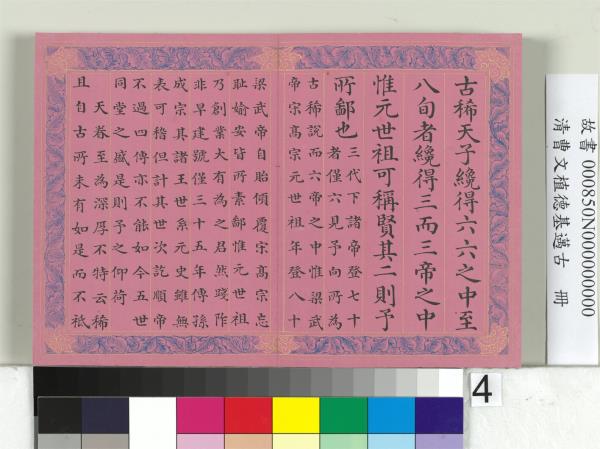 古稀天子纔得六六之中至
八旬者纔得三而三帝之中
惟元世祖可稱賢其二則予
所鄙也
三代下諸帝登七十
者僅六見予向所為
古稀說而六帝之中惟梁武
帝宋髙宗元世祖年登八十
梁武帝自貽傾覆宋髙宗忘
耻媮安皆所素鄙惟元世祖
乃創業大有為之君然踐阼
非早建號僅三十五年傳孫
成宗其諸王世系元史雖無
表可稽但計其世次訖順帝
不過四傳亦不能如今五世
同堂之盛是則予之仰荷
天眷至為深厚不特云稀
且自古所未有如是而不祗
故書 000850N000000000
清曹文植德基邁古 冊
4